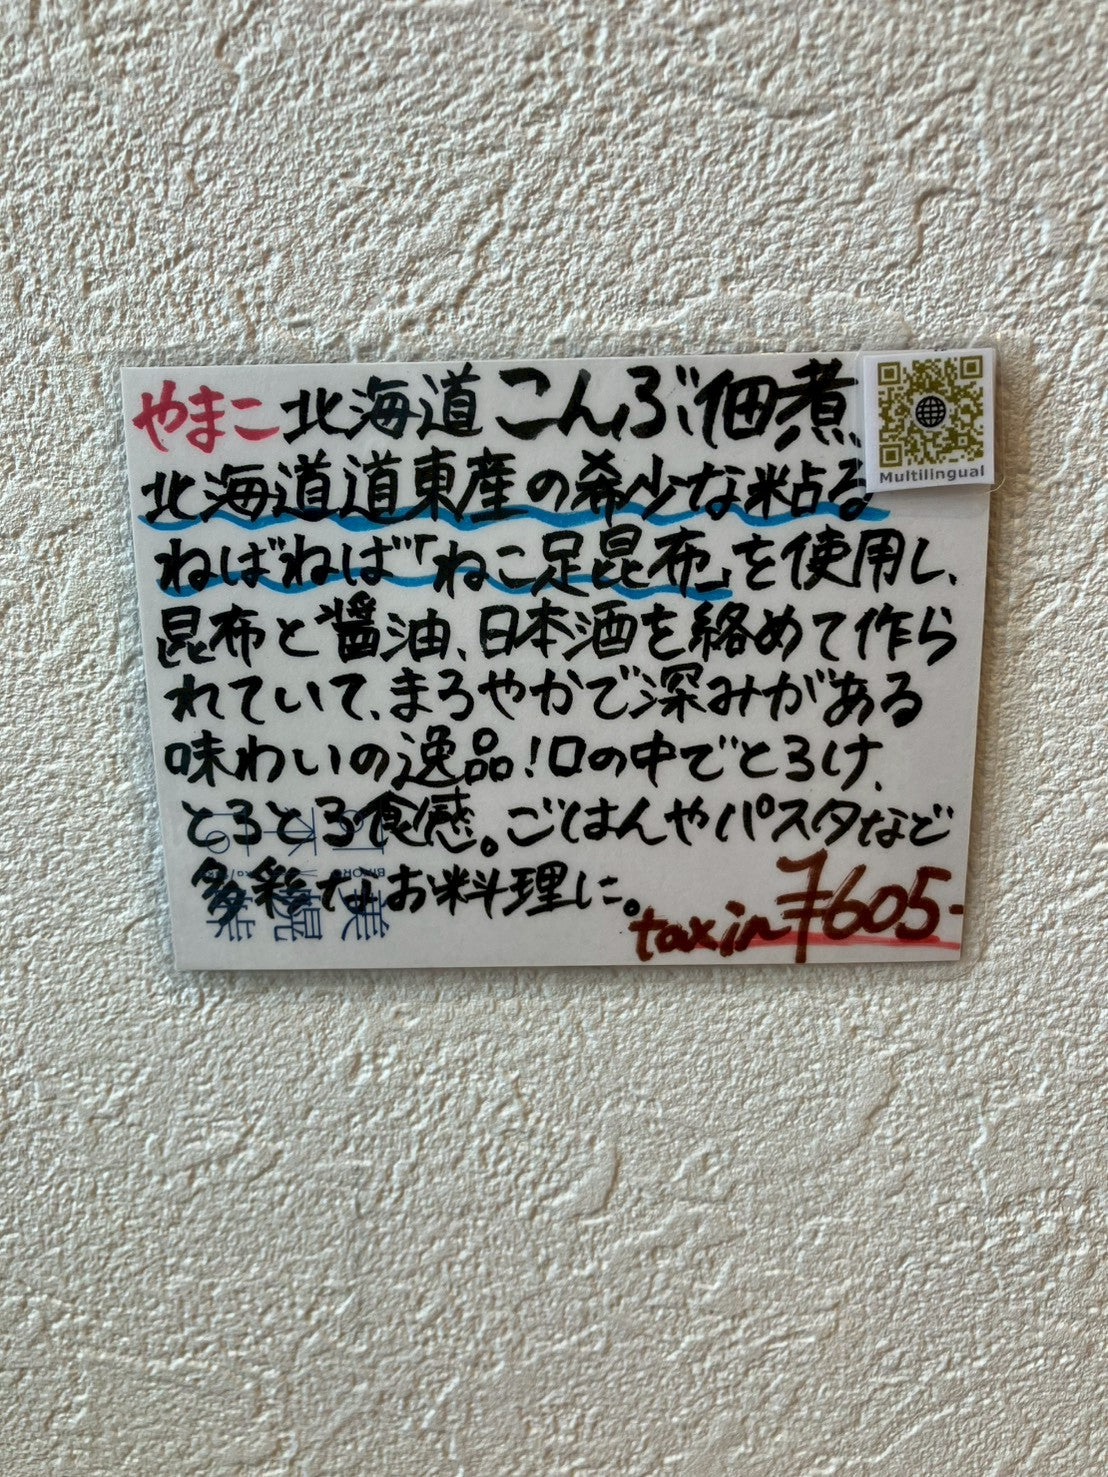 やまこ 北海道 こんぶ佃煮
Multilingual
北海道道東産の希少な粘る
ねばねば「ねこ足昆布」を使用し、
昆布と醤油、日本酒を絡めて作ら
れていて、まろやかで深みがある
味わいの逸品！口の中でとろけ、
とろとろ食感。ごはんやパスタなど
多彩なお料理に。
tax in ¥605-